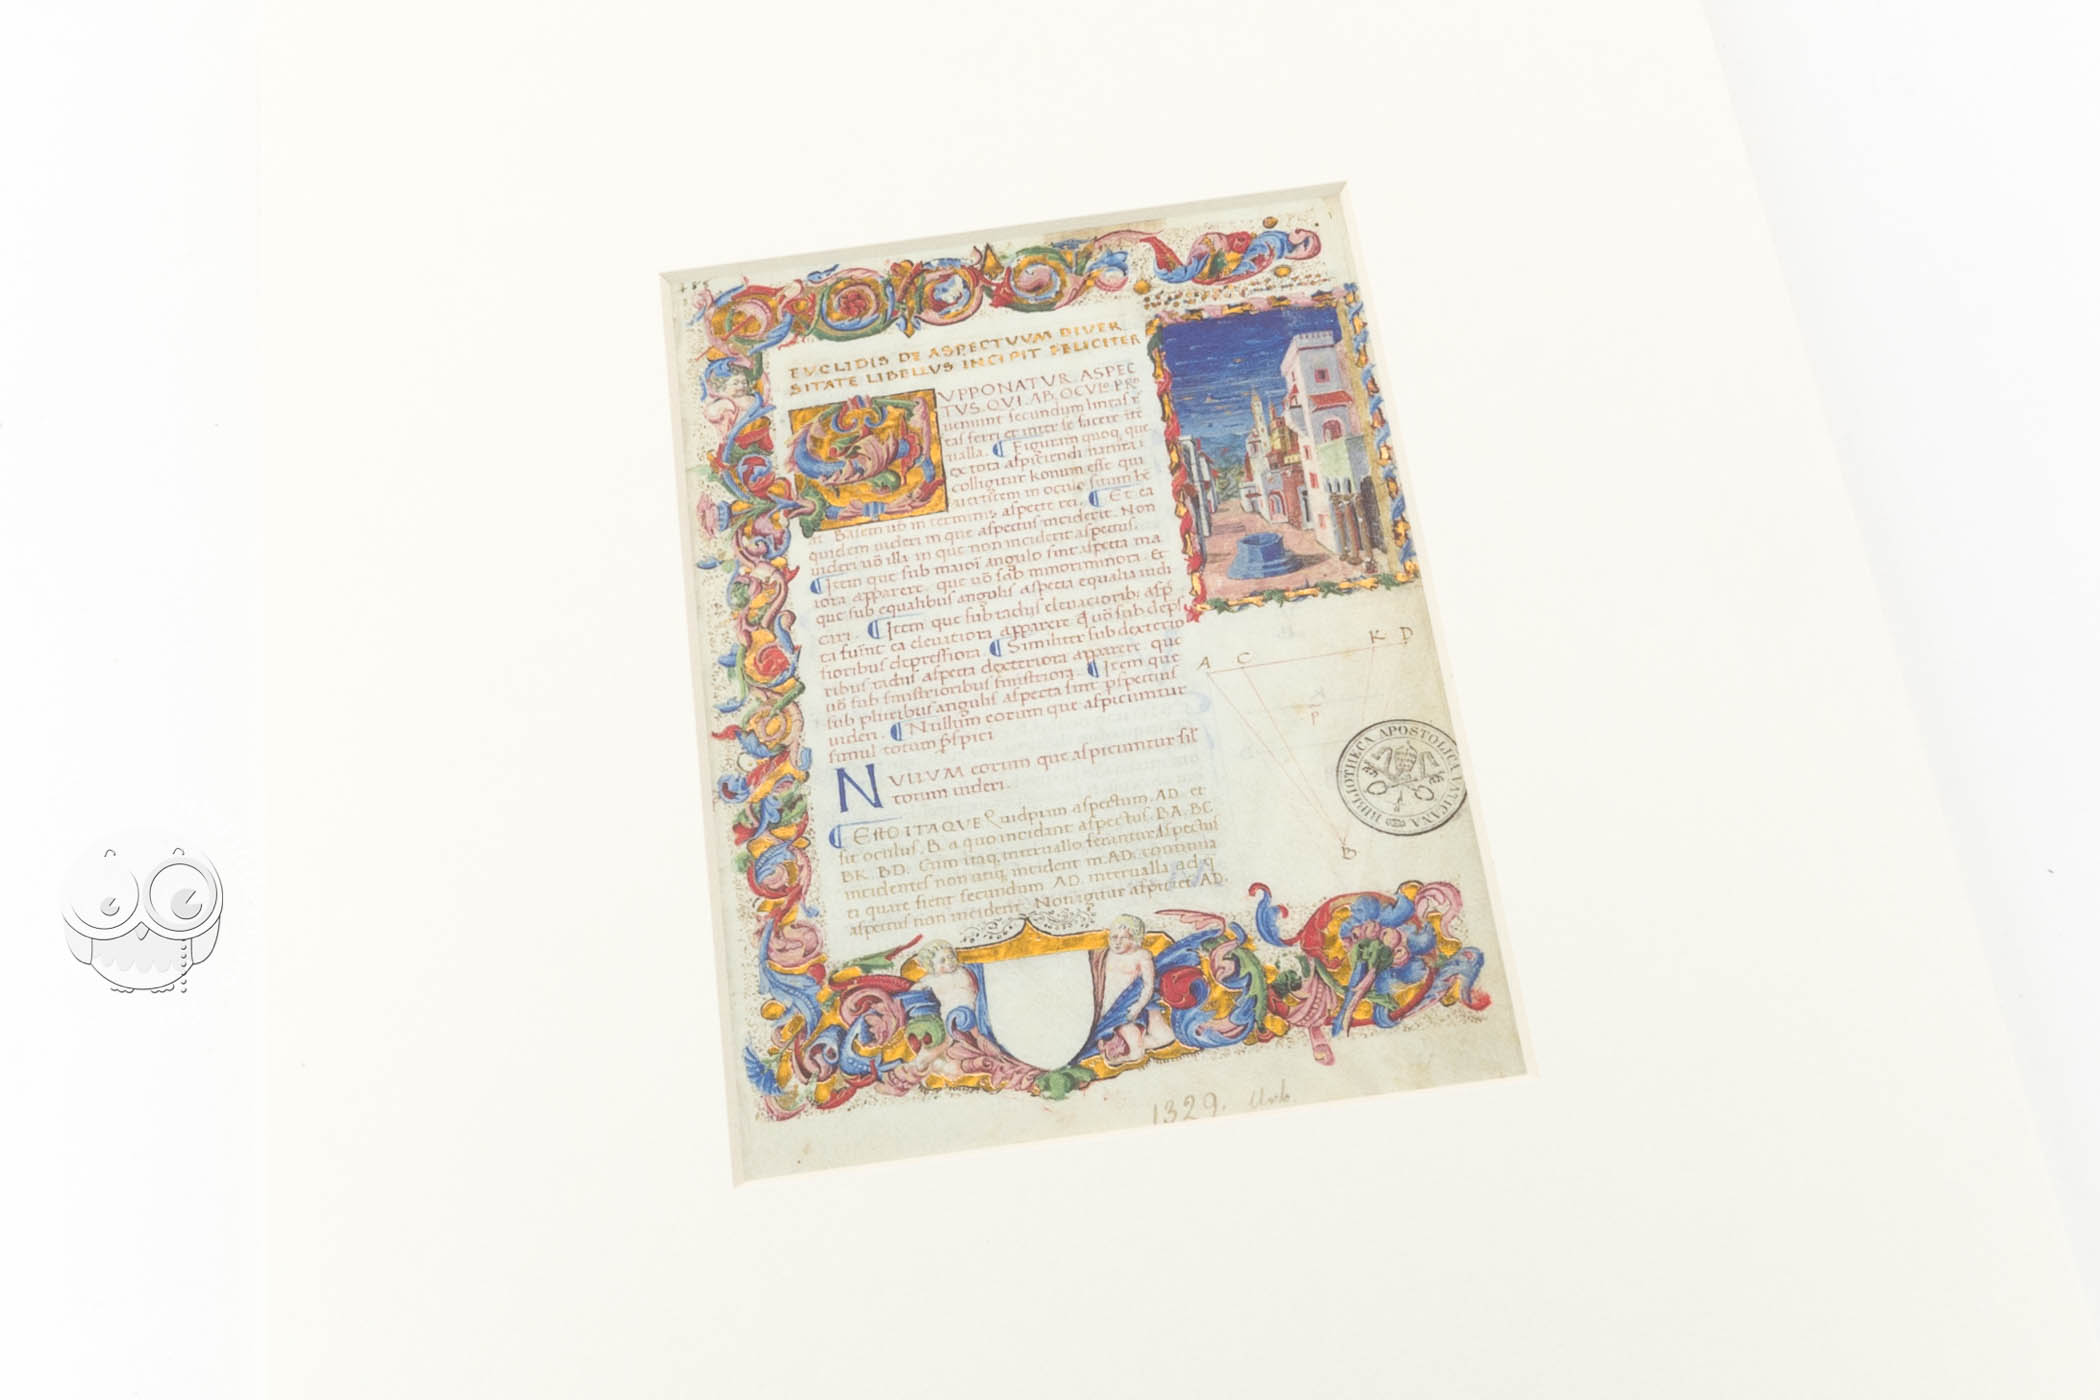 EVCLIDIS DE ASPECTVVM DIVER
SITATE LIBELLVS INCIPIT FELICITER
VPPONATVR. ASPEC
TVS. QVI. AB. OCVLO. PRO
ueniunt secundum lineas re
ctas ferri et inter se facere
ualla. Figuram quoq, que
ex tota aspiciendi natura
colligitur konum esse qui
uerticem in oculo suum
at. Basem uō in terminis aspecte rei. Et ea
quidem uideri in que aspectus inciderit. Non
uideri uō illa in que non inciderit aspectus.
Item que sub maiori angulo sint aspecta ma
iora apparere. que uō sub minori minora. Et
que sub equalibus angulis aspecta equalia uidi
eri. Item que sub radiis
ta ea eleuatiora apparere. uō sub depres
sioribus depressiora. Similiter sub dexterio
ribus radiis aspecta dexteriora apparere que
uō sub sinistrioribus sinistriora. Item que
sub pluribus angulis aspecta sint pspectius
uideri. Nullum eorum que aspiciuntur
simul totum pspici
NVLLVM eorum que aspiciuntur sil
totum uideri.
Esto ITAQVE Quidpiam aspectum. AD. et
sit oculus. B. a quo incidant aspectus. BA. BC.
BK. BD. Cum itaq, interuallo ferantur aspectus
incidentes non utiq, incident in. AD. continua
ti quare fient secundum. AD. interualla ad q̄
aspectus non incident. Non igitur aspiciet. AD.
A C K D
K
P
B
BIBLIOTHECA APOSTOLICA VATICANA
1329. Urb.